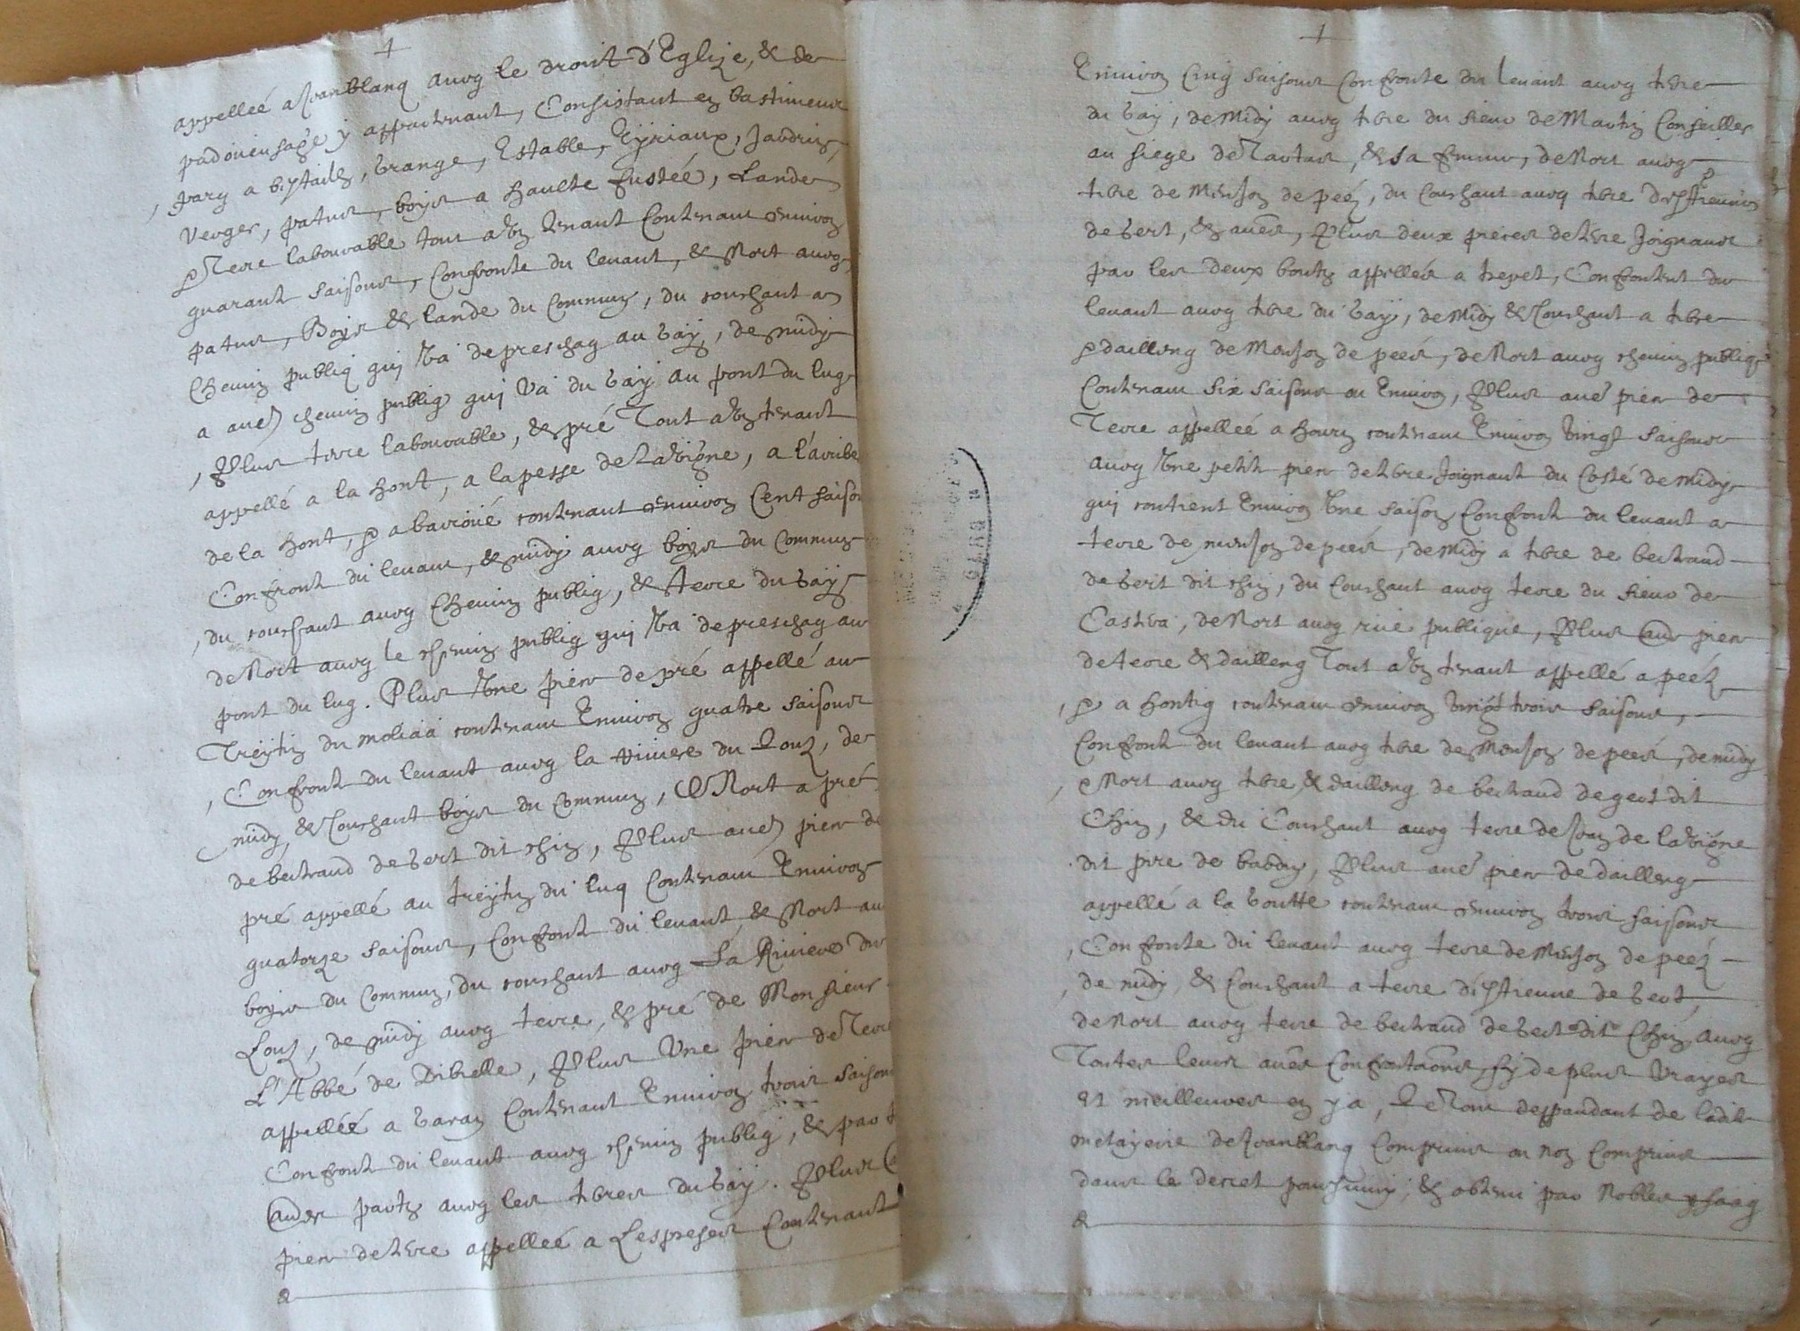 appelleé a Joanblanq auvq le droit d'Eglize, & de
padoüensage y appartenant, Consistant en bastimens
, parq a bistailz, Grange, Estable, Eyriaux, Jardins,
Verger, patus, boys a haulte fustéé, Lande
& Terre labourable tout a Un tenant Contenant environ
quarant saisons, Confronte du levant, & Nort auvq
patus, Boys & lande du Commun, du couchant a
Chemin publiq qui Va de preschaq au Gay, de midy
a auer chemin publiq qui Va du Gay au pont du luq
, Plus terre labourable, & pré Tout a Un tenant
appellé a la hont, a la pesse de la Vigne, a l'arribe
de la hont, & a baroué contenant environ Cent saisons
Confront du levant, & midy auvq boys du Commun
, du couchant auvq Chemin publiq, & terre du Gay
de Nort auvq le chemin publiq qui Va de preschaq au
pont du luq. Plus Une piece de pré appellé au
Treytin du moliaà contenant Environ quatre saisons
, Confront du levant auvq la riviere du Louz, de
midy & Couchant boys du Commun, & Nort a pré
de bertrand de Gert dit chin, Plus auer piece de
pré appellé au treytin du luq Contenant Environ
quatorze saisons, Confront du levant, & Nort au
boys du Commun, du couchant auvq La Riviere du
Louz, de midy auvq terre, & pré de Monsieur
L'Abbé de Dibielle, Plus Une piece de Terre
appelléé a Garay Contenant Environ trois saisons
Confront du levant auvq chemin publiq, & par
auers partz auvq les terres du Gay. Plus
piece de terre appelleé a Lespreser Contenant
Environ Cinq saisons Confronte du levant auvq terre
du Gay, de Midy auvq terre du sieur de Martin Conseiller
au siege de Tartas, & sa femme, de Nort auvq
terre de Monson de peér, du Couchant auvq terre d'Estienne
de Gert, & auers, Plus deux pieces de terre Joignans
par les deux boutz appellés a trepet, Confrontent du
levant auvq terre du Gay, de Midy & Couchant a terre
& dailleng de Monson de peér, de Nort auvq chemin publiq
Contenant six saisons ou Environ, Plus auer piece de
Terre appelleé a houry contenant Environ Vingt saisons
auvq Une petite piece de terre Joignant du Costé de midy
qui contient Environ Une saison Confront du levant a
terre de monson de peér, de Midy a terre de bertrand
de Gert dit chin, du Couchant auvq terre du sieur de
Castra, de Nort auvq rüe publique, Plus auer piece
de terre & dailleng Tout a Un tenant appellé a peér
, & a hontiq contenant environ Vingt trois saisons,
Confront du levant auvq terre de Monson de peér, de midy
, & Nort auvq terre & dailleng de bertrand de gert dit
Chin, & du Couchant auvq terre de Joan de la Vigne
dit pire de baboy, Plus auer piece de dailleng
appellé a la Goutte contenant environ trois saisons
, Confronte du levant auvq terre de Monson de peér
, de midy, & Couchant a terre d'Estienne de Gert,
de Nort auvq terre de bertrand de Gert dit Chin, auvq
Toutes leurs auers Confrontaôns, sy de plus Vrayes
et meilleures en y a, Le Tout deppandant de ladite
metayerie de Joanblanq Comprins ou non Comprins
dans le decret poursuivy, & obtenu par Nobles Isaaq